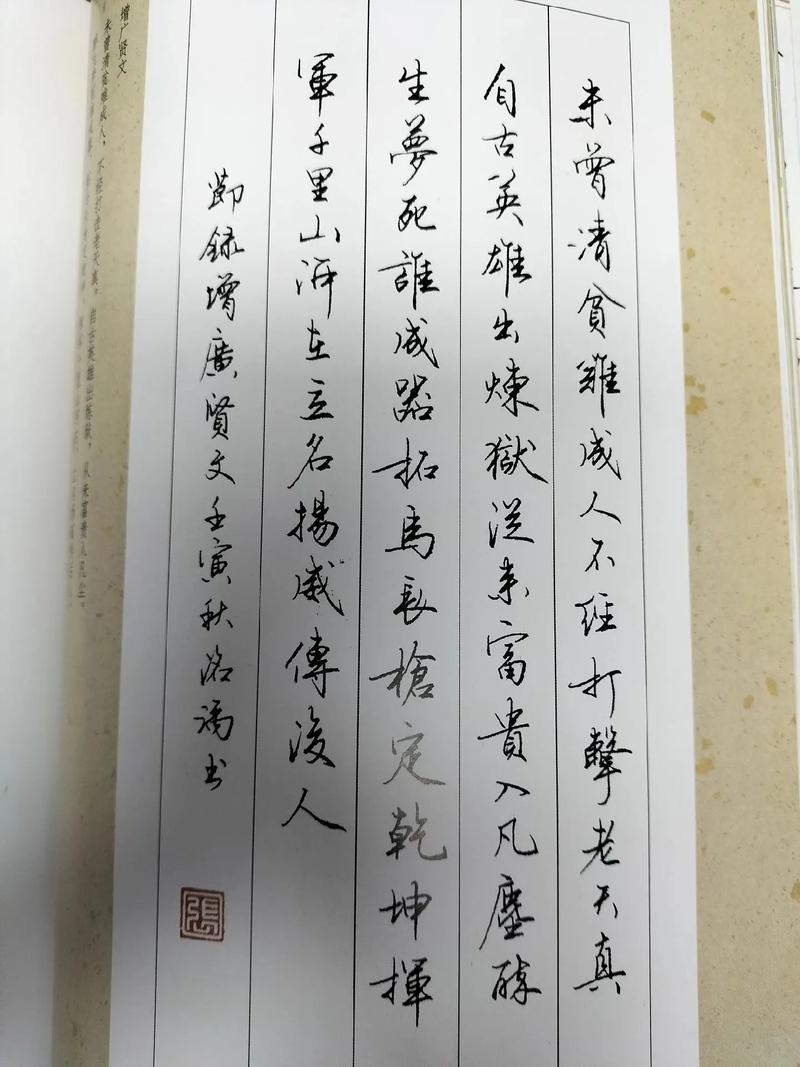 未曾清貧難成人不經打擊老天真
自古英雄出煉獄從來富貴入凡塵醉
生夢死誰成器拓馬長槍定乾坤揮
軍千里山河在立名揚威傳後人
節録增廣賢文壬寅秋洺滿书
張
增广贤文
未曾清贫难成人，不经打击老天真。自古英雄出炼狱，从来富贵入凡尘。